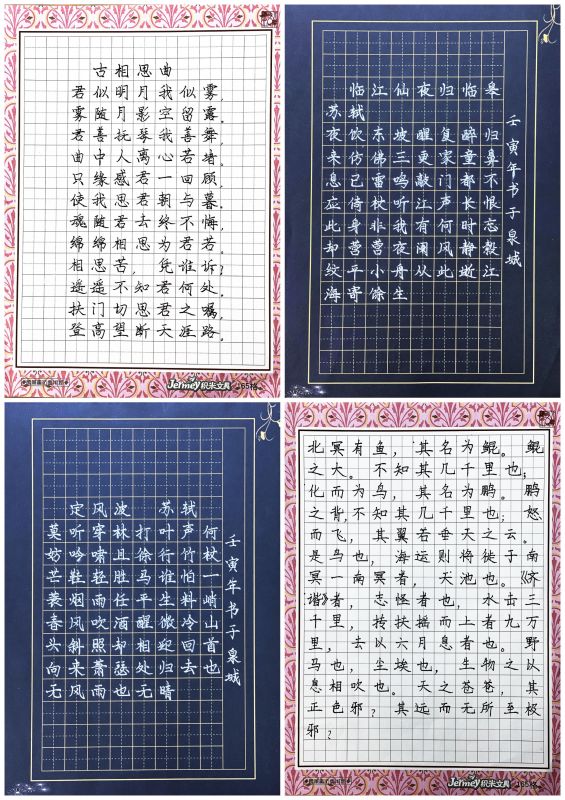 古相思曲
君似明月我似雾，
雾随月影空留露。
君善抚琴我善舞，
曲中人离心若堵。
只缘感君一回顾，
使我思君朝与暮。
魂随君去终不悔，
绵绵相思为君苦。
相思苦，凭谁诉？
遥遥不知君何处。
扶门切思君之嘱，
登高望断天涯路。
Jermey积米文具 165格
临江仙夜归临皋
苏轼
夜饮东坡醒复醉归
来仿佛三更家童鼻
息已雷鸣敲门都不
应倚杖听江声长恨
此身非我有何时忘
却营营夜阑风静縠
纹平小舟从此逝江
海寄馀生
壬寅年书于泉城
定风波 苏轼
莫听穿林打叶声何
妨吟啸且徐行竹杖
芒鞋轻胜马谁怕一
蓑烟雨任平生料峭
春风吹酒醒微冷山
头斜照却相迎回首
向来萧瑟处归去也
无风雨也无晴
壬寅年书于泉城
北冥有鱼，其名为鲲。鲲
之大。不知其几千里也；
化而为鸟，其名为鹏。鹏
之背，不知其几千里也；怒
而飞，其翼若垂天之云。
是鸟也，海运则将徙于南
冥一南冥者，天池也。《齐
谐》者，志怪者也，水击三
千里，抟扶摇而上者九万
里，去以六月息者也。野
马也，尘埃也，生物之以
息相吹也。天之苍苍，其
正色邪？其远而无所至极
邪？
Jermey积米文具